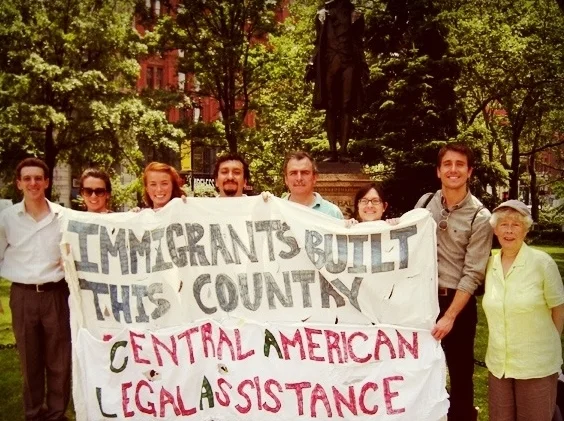 IMMIGRANTS BUILT
THIS COUNTRY
CENTRAL AMERICAN
LEGAL ASSISTANCE